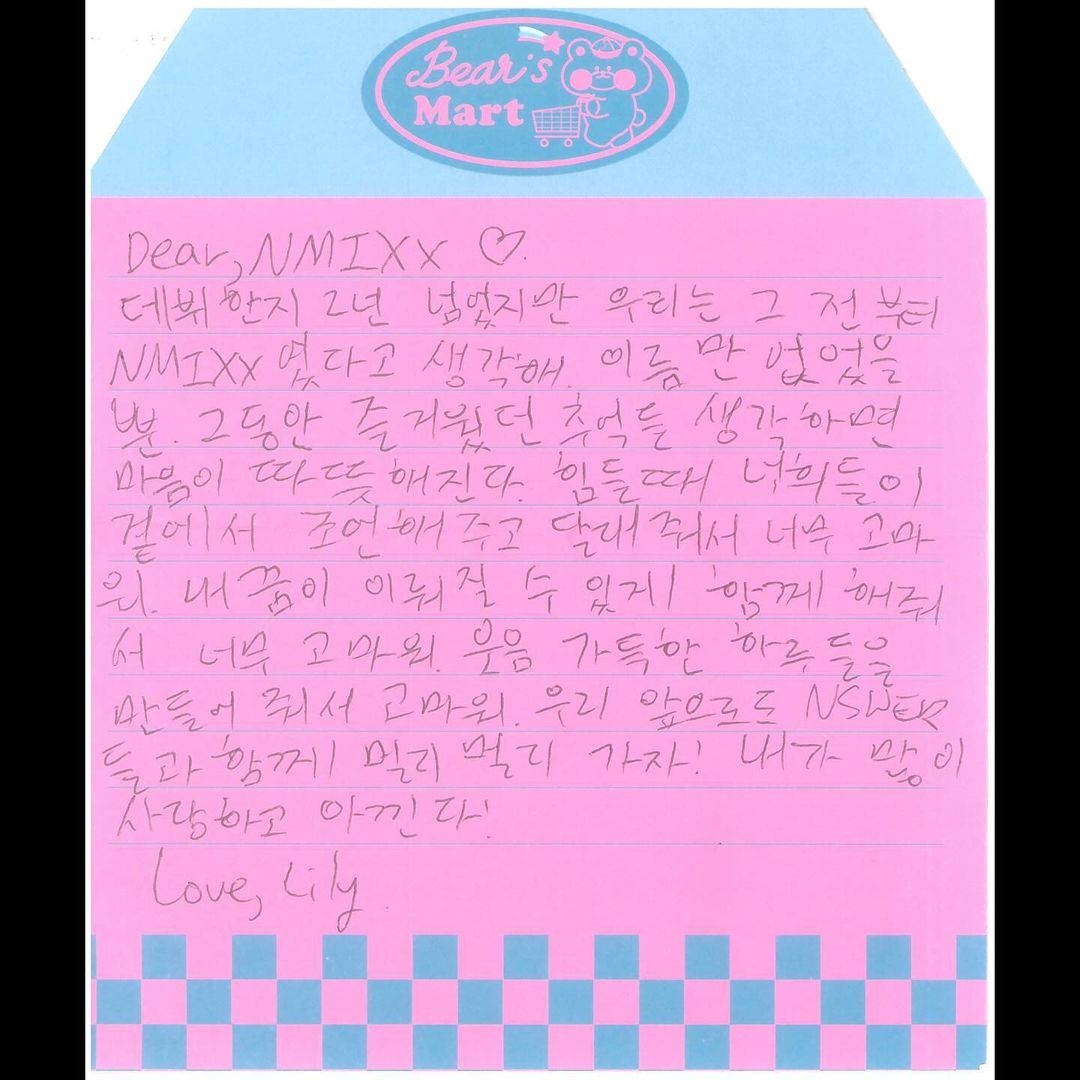 Bear's
Mart
Dear, NMIXX ♡.
데뷔한지 2년 넘었지만 우리는 그 전부터
NMIXX 였다고 생각해. 이름만 없었을
뿐. 그동안 즐거웠던 추억들 생각하면
마음이 따뜻해진다. 힘들때 너희들이
곁에서 조언해주고 달래줘서 너무 고마
워. 내 꿈이 이뤄질 수 있게 함께 해줘
서 너무 고마워. 웃음 가득한 하루들을
만들어 줘서 고마워. 우리 앞으로도 NSWER
들과 함께 멀리 멀리 가자! 내가 많이
사랑하고 아낀다!
Love, Lily